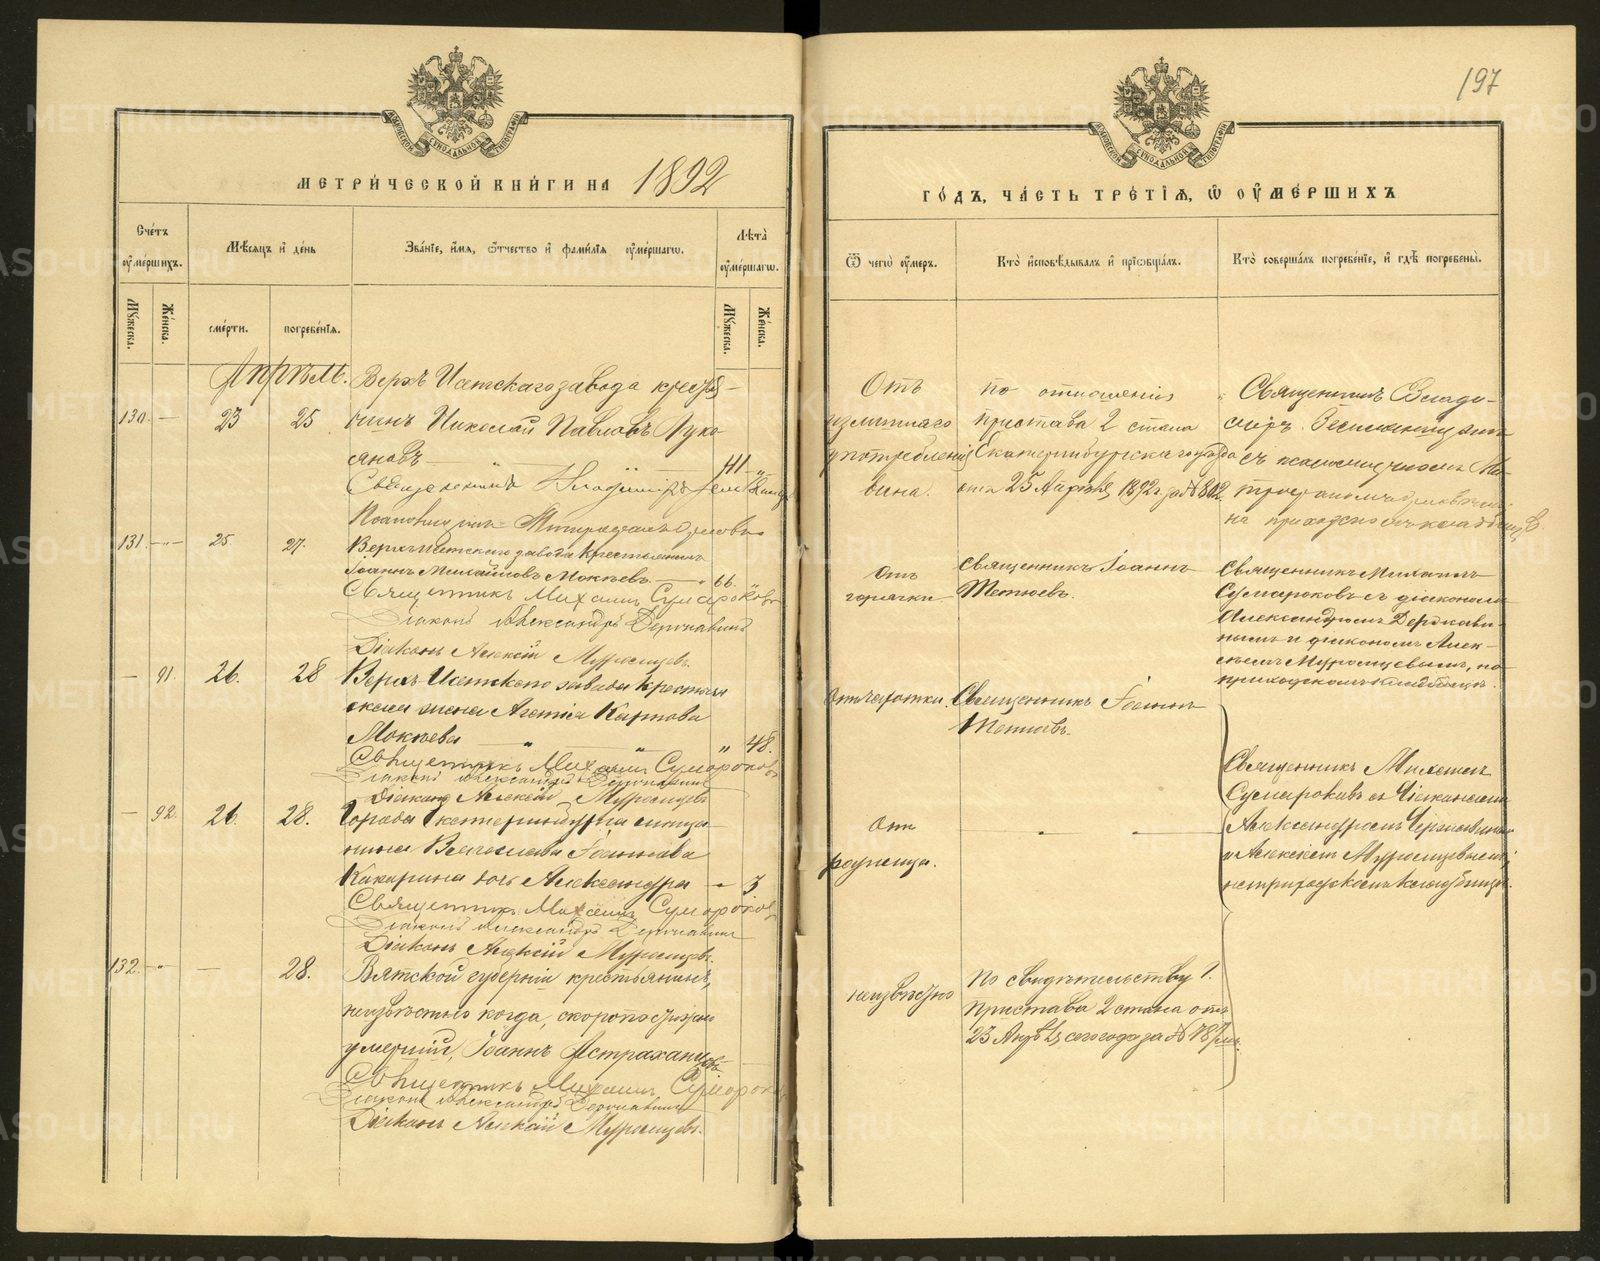 МЕТРИ́ЧЕСКОЙ КНИ́ГИ НА 1892
Сче́тъ ᲂу҆ме́ршихъ.
Мѣ́сяцъ и҆ де́нь
Зва́нїе, и҆́мя, ѻ҆́тчество и҆ фами́лїя ᲂу҆ме́ршагѡ.
Лѣ́та ᲂу҆ме́ршагѡ.
Мꙋ́жеска.
Же́нска.
сме́рти.
погребе́нїя.
Мꙋ́жеска.
Же́нска.
Апрѣль. Верхъ Исетскаго завода крестья-
130. — 23 25 нинъ Николай Павловъ Луко-
яновъ 41 „
Священникъ Владиміръ
131. — „ — 25. 27. Верхъ Исетскаго завода крестьянинъ
Іоаннъ Михайловъ Мокѣевъ. 66. „
Священникъ Михаилъ Сумароковъ
Діаконъ Александръ Державинъ
Діаконъ Алексій Муромцевъ.
— 91. 26. 28 Верхъ-Исетскаго завода крестьян
ская жена Агнія Карпова
Мокѣева „ „ „ 48.
Священникъ Михаилъ Сумароковъ
Діаконъ Александръ Державинъ
Діаконъ Алексій Муромцевъ
— 92. 26. 28. Города Екатеринбурга
Іоаннова
дочь Александра „ 3
Священникъ Михаилъ Сумароковъ
Діаконъ Александръ Державинъ
Діаконъ Алексій Муромцевъ.
132. — „ — 28. Вятской губерніи крестьянинъ,
неизвѣстно когда, скоропостижно
умершій, Іоаннъ Астраханцевъ
Священникъ Михаилъ Сумароковъ
Діаконъ Александръ Державинъ
Діаконъ Алексій Муромцевъ.
197
ГО́ДЪ, ЧА́СТЬ ТРЕ́ТЇѦ, Ѡ҆ ОУ҆МЕ́РШИХЪ
Ѿ чегѡ̀ ᲂу҆́меръ.
Кто̀ и҆сповѣ́дывалъ и҆ прїѡбща́лъ.
Кто̀ соверша́лъ погребе́нїе, и҆ гдѣ̀ погребены̀.
Отъ
излишняго
употребленія
вина.
по отношенію
пристава 2 стана
Екатеринбургскаго уѣзда
отъ 25 Апрѣля 1892 г. за № 802.
Священникъ Влади-
міръ
съ псаломщикомъ Ми-
трофаномъ
на приходскомъ кладбищѣ
Отъ
горячки
Священникъ Іоаннъ
Тетюевъ.
Священникъ Михаилъ
Сумароковъ съ діакономъ
Александромъ Держави-
нымъ и діакономъ Алек-
сѣемъ Муромцевымъ, на
приходскомъ кладбищѣ.
Отъ чахотки.
Священникъ Іоаннъ
Тетюевъ.
Отъ
родимца.
„ „
Священникъ Михаилъ
Сумароковъ съ Діаконами
Александромъ Державинымъ
и Алексіемъ Муромцевымъ,
на приходскомъ кладбищѣ.
неизвѣстно
По свидѣтельству Г.
Пристава 2 стана отъ
23 Апрѣля сего года за №